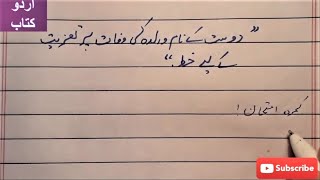 اردو
کتاب
”دوست کے نام والدہ کی وفات پر تعزیت
کے لیے خط“
کمرہ امتحان!
Subscribe